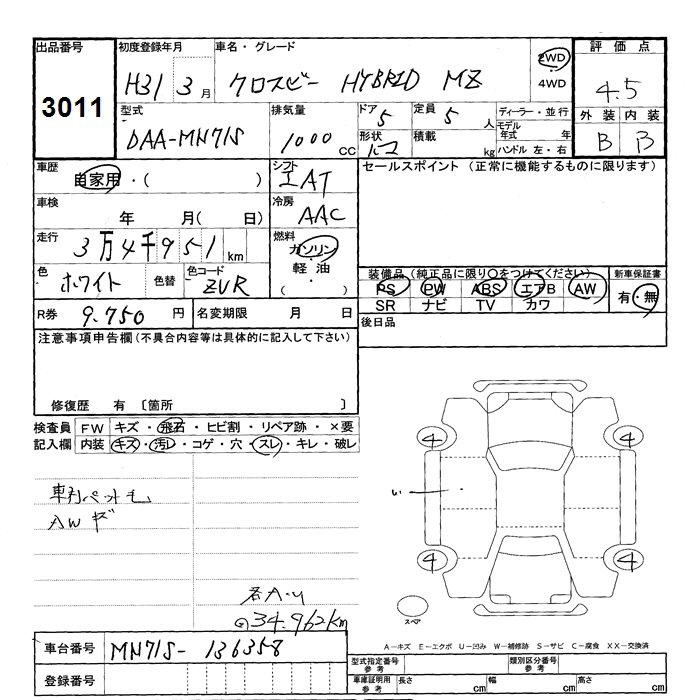 出品番号 初度登録年月 車名・グレード 評価点
3011 H31 3月 クロスビー HYBRID MZ 2WD 4WD 4.5
型式 排気量 ドア 定員 ディーラー・並行 外装 内装
DAA-MN71S 1000 cc 5 5人 モデル年式 年 B B
形状 積載 kg ハンドル 左・右
車歴 シフト セールスポイント (正常に機能するものに限ります)
自家用・( ) IAT
車検 冷房
年 月 ( 日) AAC
走行 燃料
3万4千951km ガソリン
色 色替 色コード 軽・油 装備品 (純正品に限り○をつけてください) 新車保証書
ホワイト ZVR ( ) PS PW ABS エアB AW 有・無
SR ナビ TV カワ
R券 9.750円 名変期限 月 日 後日品
注意事項申告欄 (不具合内容等は具体的に記入して下さい)
修復歴 有 〔箇所 〕
検査員 FW キズ・飛石・ヒビ割・リペア跡・×要
記入欄 内装 キズ・汚レ・コゲ・穴・スレ・キレ・破レ
4 4
車内ペット毛
AWキズ
4 4
スペア
34.962km
A-キズ E-エクボ U-凹み W-補修跡 S-サビ C-腐食 XX-交換済
車台番号 MN71S- 136358
型式指定番号 参考 類別区分番号 参考
登録番号 車庫証明用 参考 長さ cm 幅 cm 高さ cm